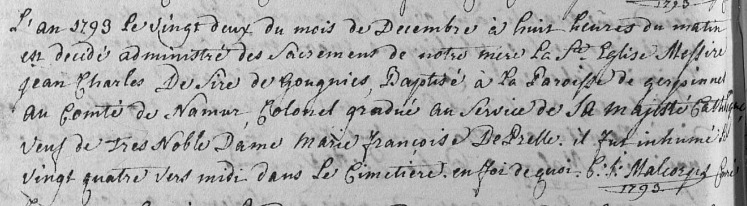 1793
L'an 1793 le vingt deux du mois de Decembre à huit heures du matin
est decidé administré des Sacremens de notre mere La Ste Eglise Messire
jean Charles De Sire de Gougnies, Baptisé à La Paroisse de gerpinnes
au Comté de Namur, Colonel gradué au Service de Sa Majesté Catholique
veuf de Tres Noble Dame Marie françoise De Prelle. il fut inhumé le
vingt quatre vers midi dans Le Cimetiere. en foi de quoi. Malcorps Curé
1793